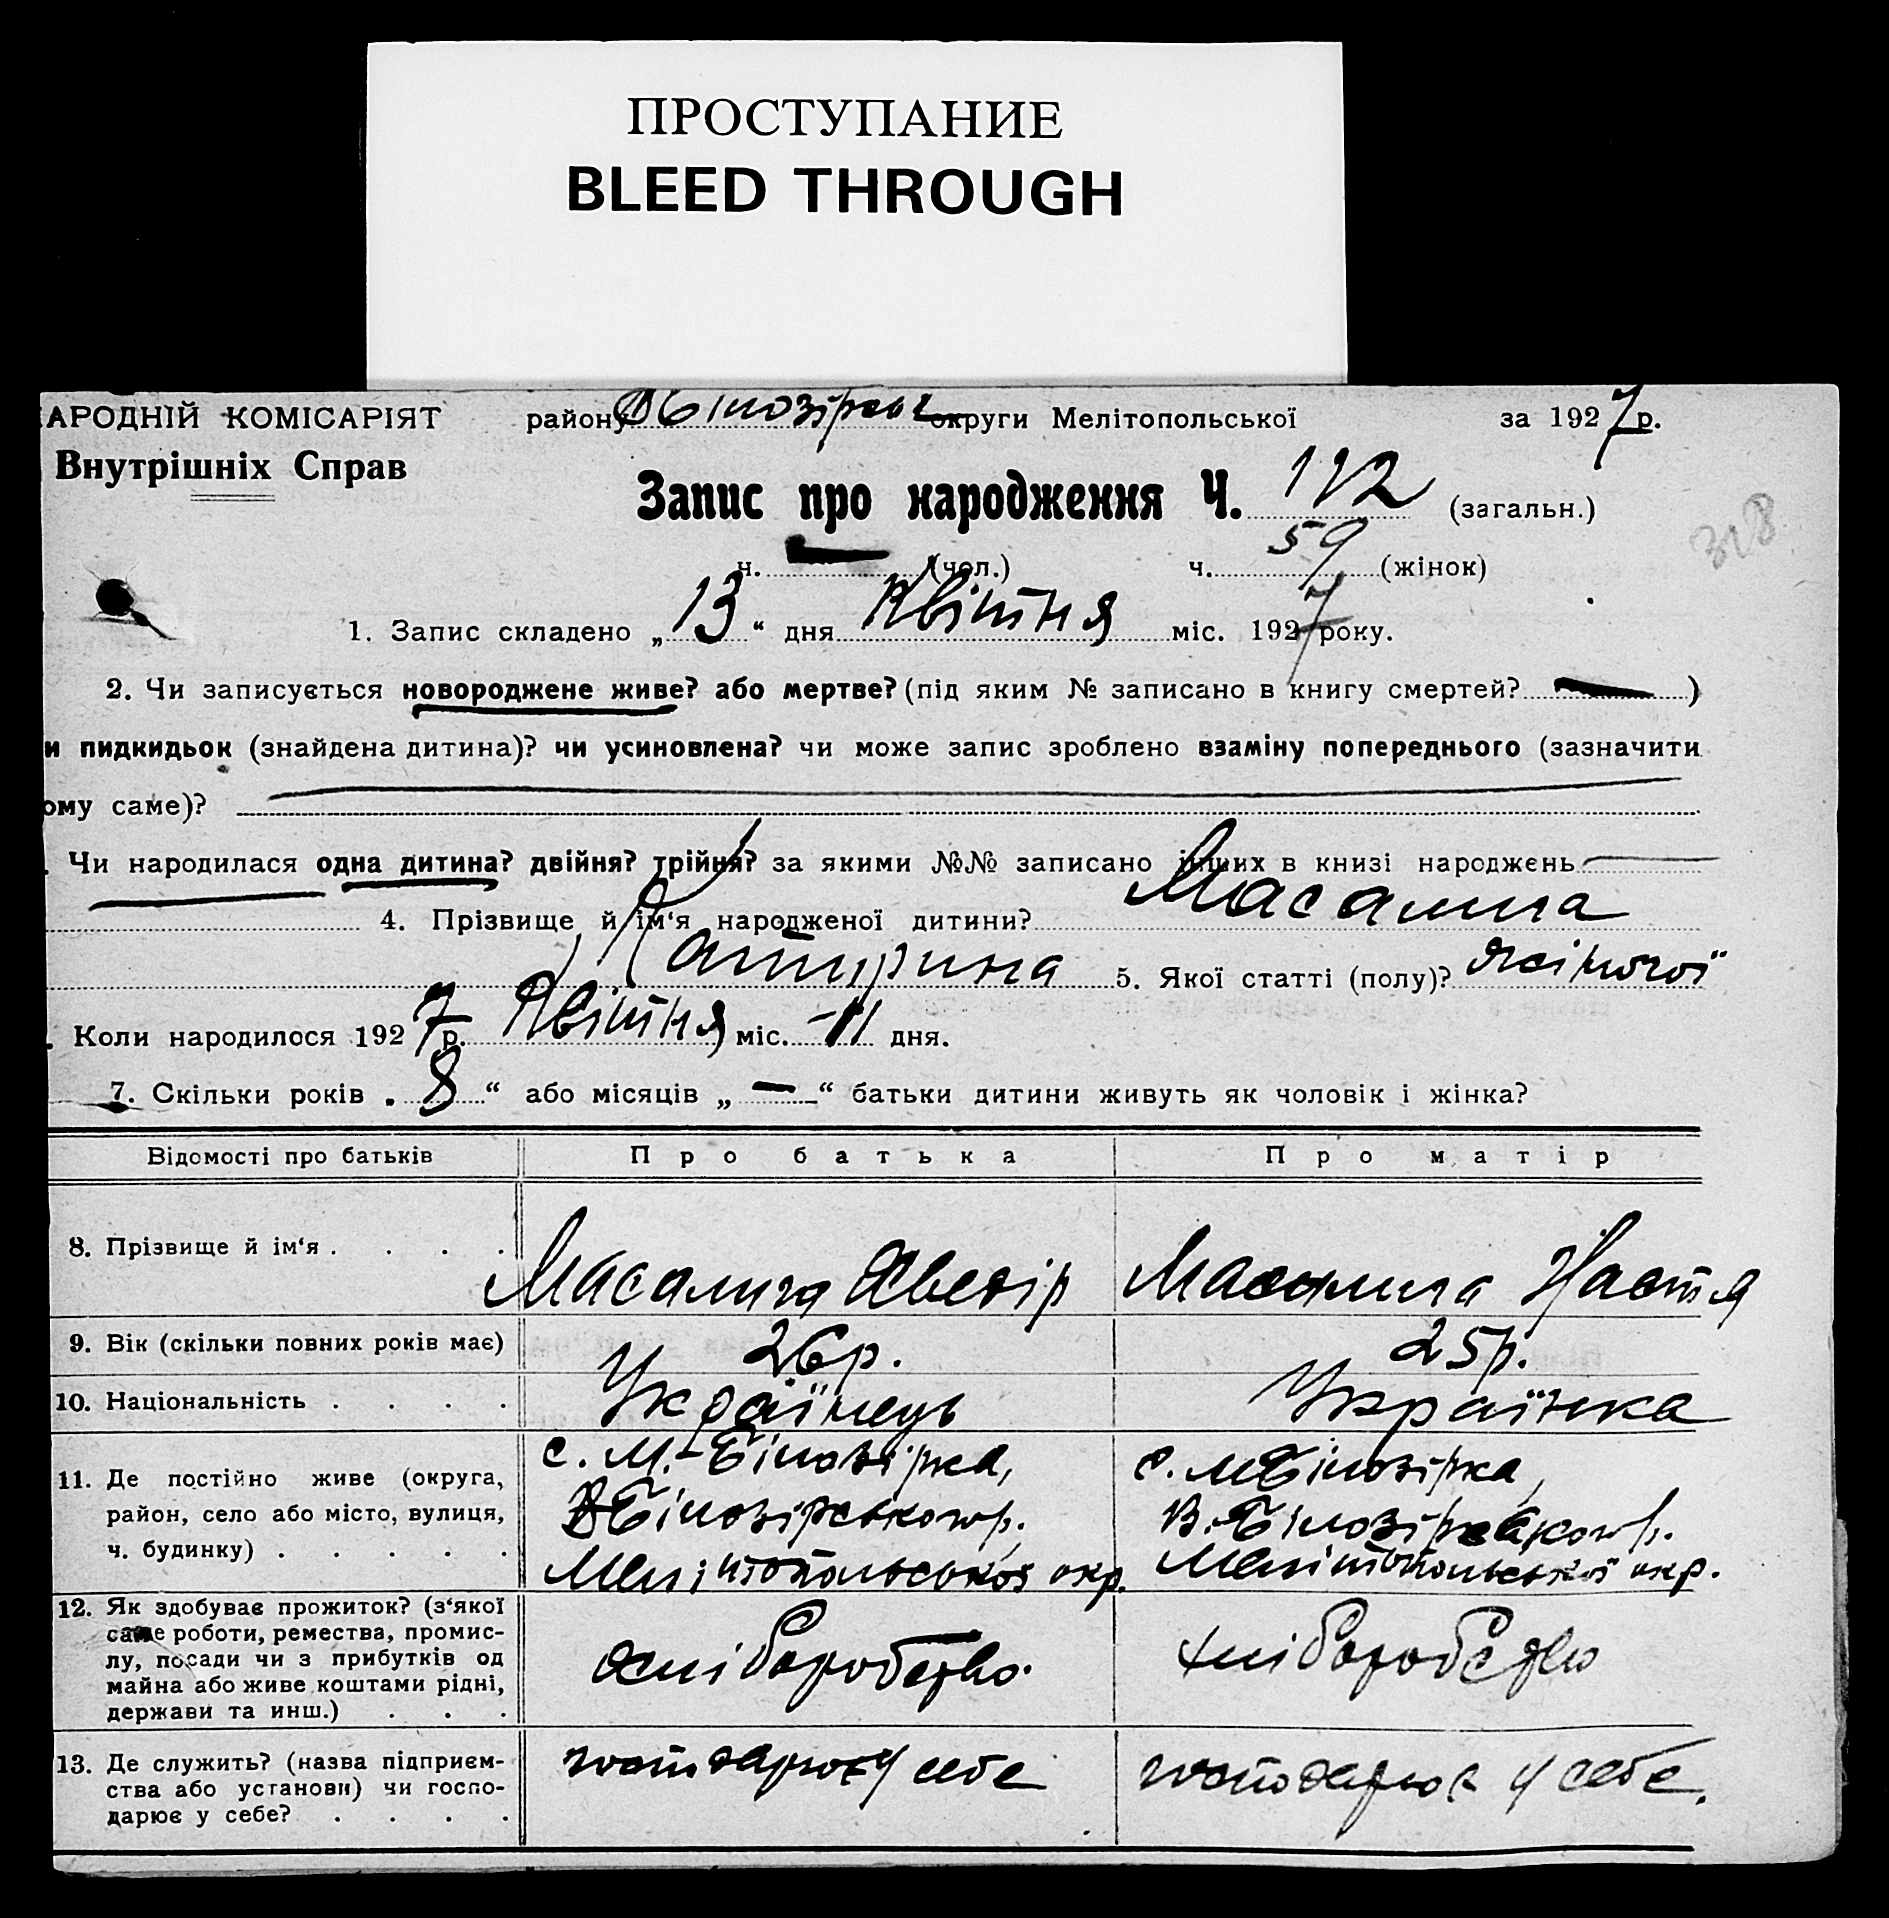 ПРОСТУПАНИЕ
BLEED THROUGH
АРОДНІЙ КОМІСАРІЯТ району округи Мелітопольської за 1927 р.
Внутрішніх Справ
Запис про народження Ч. 112 (загальн.)
318
ч. — (чол.) ч. 59 (жінок)
1. Запис складено „13“ дня Квітня міс. 1927 року.
2. Чи записується новороджене живе? або мертве? (під яким № записано в книгу смертей? — )
и пидкидьок (знайдена дитина)? чи усиновлена? чи може запис зроблено взаміну попереднього (зазначити
ому саме)?
. Чи народилася одна дитина? двійня? трійня? за якими №№ записано інших в книзі народжень
4. Прізвище й ім‘я народженої дитини? Масалига
Катирина 5. Якої статті (полу)? жіночої
. Коли народилося 1927 р. Квітня міс. 11 дня.
7. Скільки років „8“ або місяців „—“ батьки дитини живуть як чоловік і жінка?
Відомості про батьків Про батька Про матір
8. Прізвище й ім‘я . . . . Масалига Масалига Настя
9. Вік (скільки повних років має) 26 р. 25 р.
10. Національність . . . . Українець Українка
11. Де постійно живе (округа, с. М.-Білозірка, с. М Білозірка,
район, село або місто, вулиця, ВБілозірського р. В.-Білозірського р.
ч. будинку) . . . . . Мелітопольської окр. Мелітопольської окр.
12. Як здобуває прожиток? (з‘якої
саме роботи, ремества, промис-
лу, посади чи з прибутків од хліборобство. хліборобство
майна або живе коштами рідні,
держави та инш.) . . .
13. Де служить? (назва підприєм- господарює у себе господарює у себе.
ства або установи) чи госпо-
дарює у себе? . . . .